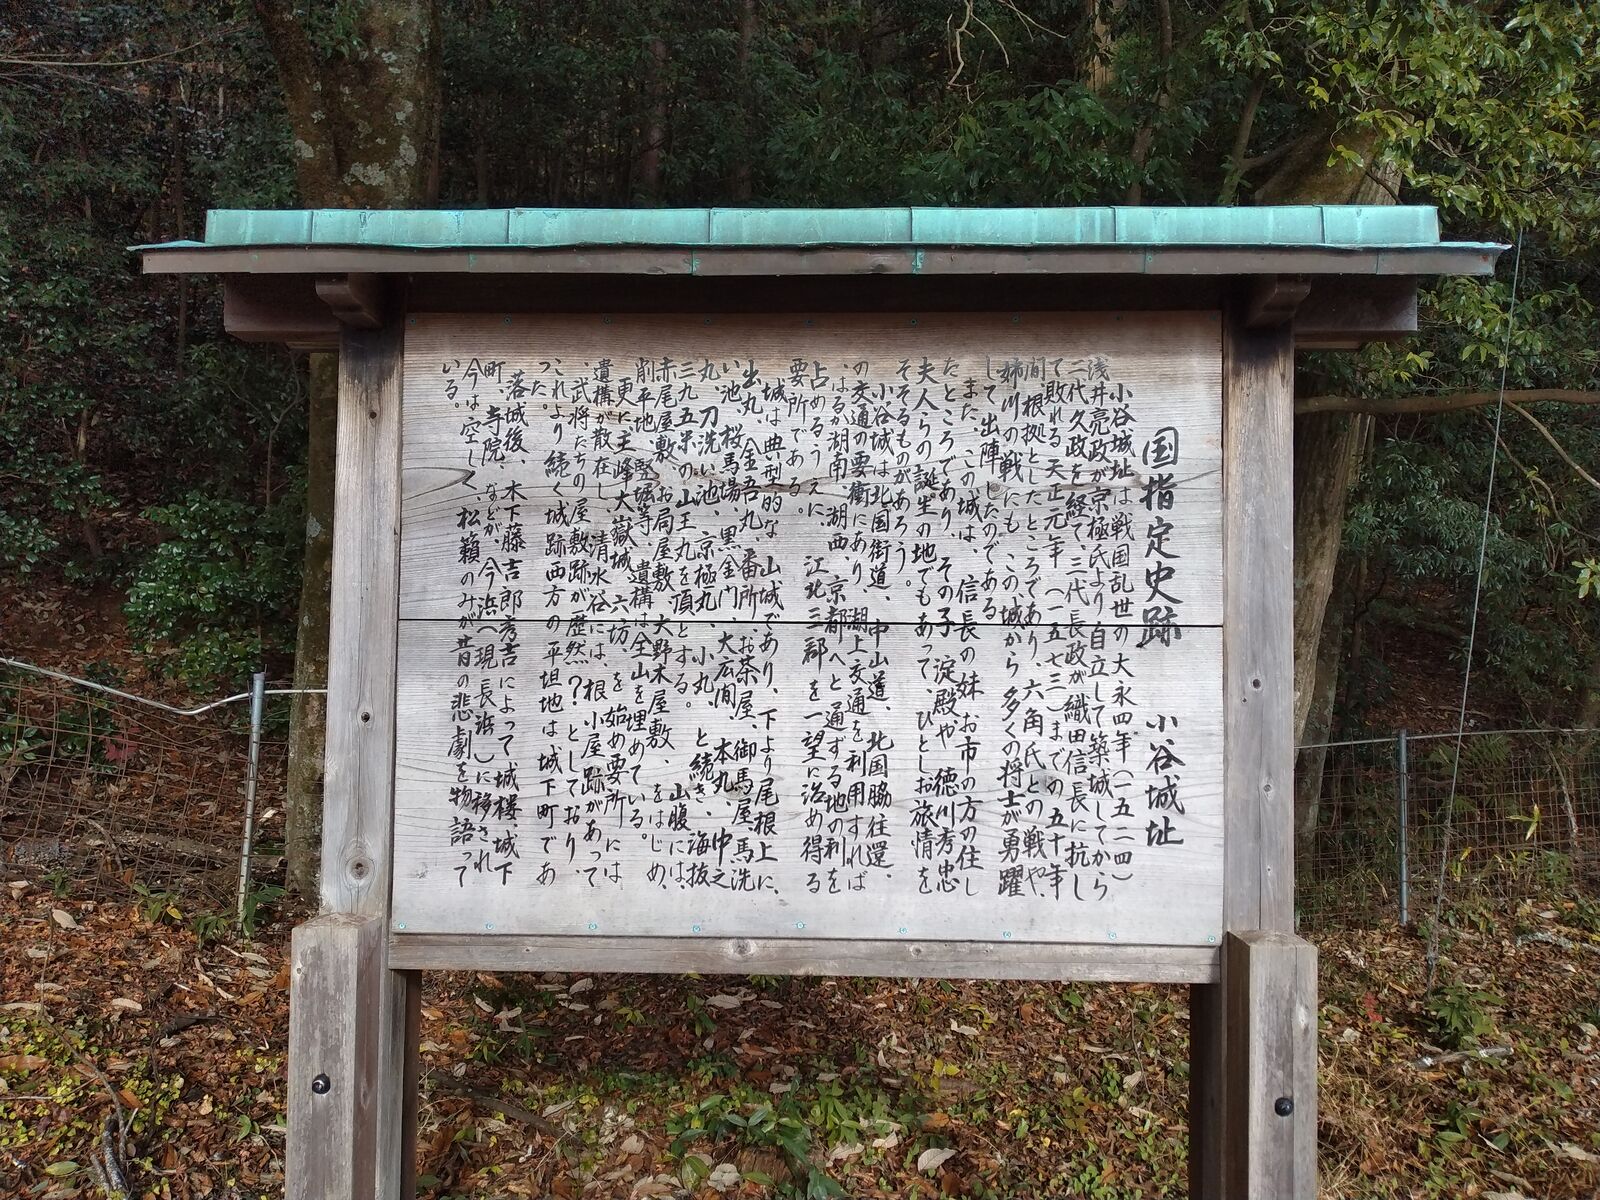 国指定史跡　小谷城址
小谷城址は戦国乱世の大永四年(一五二四)
浅井亮政が京極氏より自立して築城してから
二代久政を経て、三代長政が織田信長に抗し
て敗れる天正元年(一五七三)までの五十年
間、根拠としたところであり、六角氏との戦や、
姉川の戦にも、この城から多くの将士が勇躍
して出陣したのである
また、この城は、信長の妹お市の方の住し
たところであり、その子淀殿や、徳川秀忠
夫人らの誕生の地でもあって、ひとしお旅情を
そそるものがあろう。
小谷城は北国街道、中山道、北国脇往還、
の交通の要衝にあり、湖上交通を利用すれば
、はるか湖南、湖西、京都へと通ずる地の利を
占めるうえに、江北三郡を一望に治め得る
要所である。
城は典型的な山城であり、下より尾根上に、
出丸、金吾丸、番所、お茶屋、御馬屋、馬洗
い池、桜馬場、黒金門、大広間、本丸、中之
丸、刀洗い池、京極丸、小丸、と続き、海抜
三九五米の山王丸を頂とする。山腹には、
赤尾屋敷、お局屋敷、大野木屋敷、をはじめ、
削平地、竪堀等、遺構は全山を埋めている。
更に、主峰大嶽城、六坊、を始め要所には
遺構が散在し、清水谷には、根小屋跡があって
、武将たちの屋敷跡が歴然?としており、
これより続く城跡西方の平坦地は城下町であ
った。
落城後、木下藤吉郎秀吉によって城楼、城下
町、寺院、などが、今浜へ(現長浜)に移され
今は空しく、松籟のみが昔の悲劇を物語って
いる。